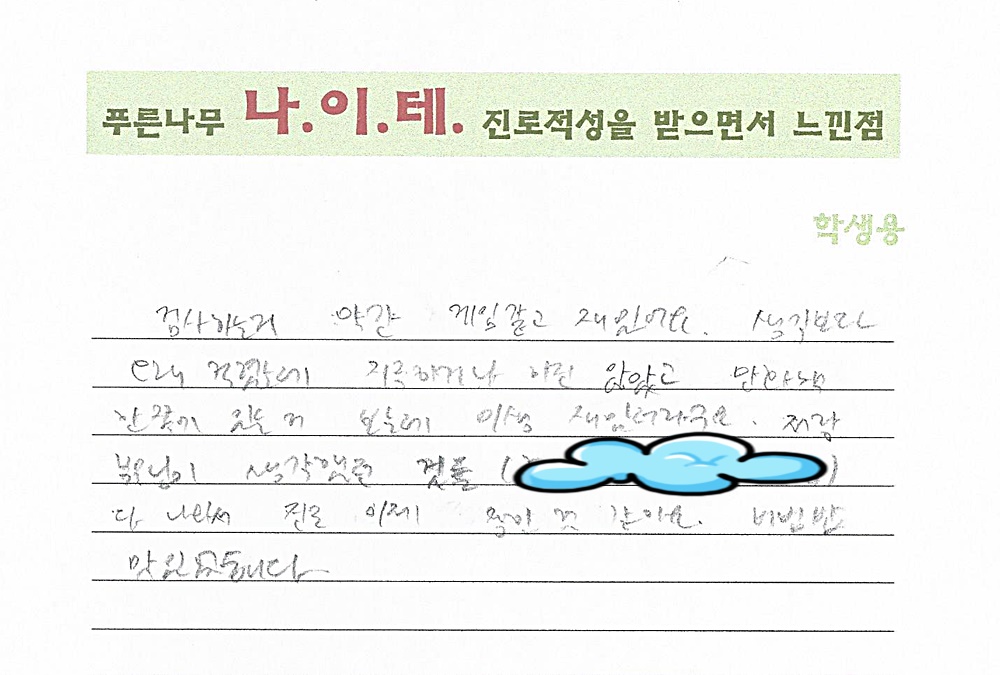 푸른나무 나.이.테. 진로적성을 받으면서 느낀점
학생용
검사하는게 약간 게임같고 재밌어요. 생각보다
오래 걸렸는데 지루하거나 하진 않았고
있는 거 보는데 재밌더라구요. 저랑
부모님이 생각했던 것들 (
다 나와서 진로 이제 것 같아요. 비빔밥
맛있었습니다